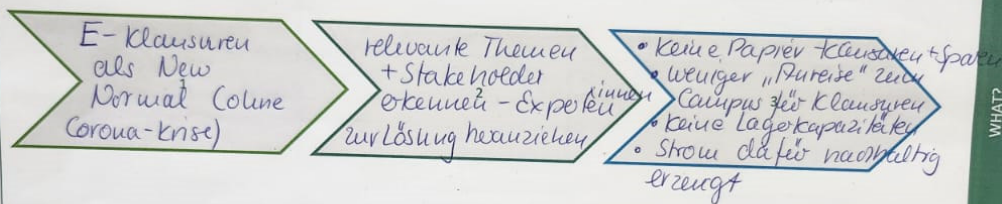 E-Klausuren
als New
Normal (ohne
Corona-Krise)
relevante Themen
+ Stakeholder
erkennen - Experten
innen
zur Lösung heranziehen
• Keine Papier-Klausuren + Sparen
• weniger „Anreise" zum
Campus für Klausuren
• Keine Lagerkapazitäten
• Strom dafür nachhaltig
erzeugt
WHAT?